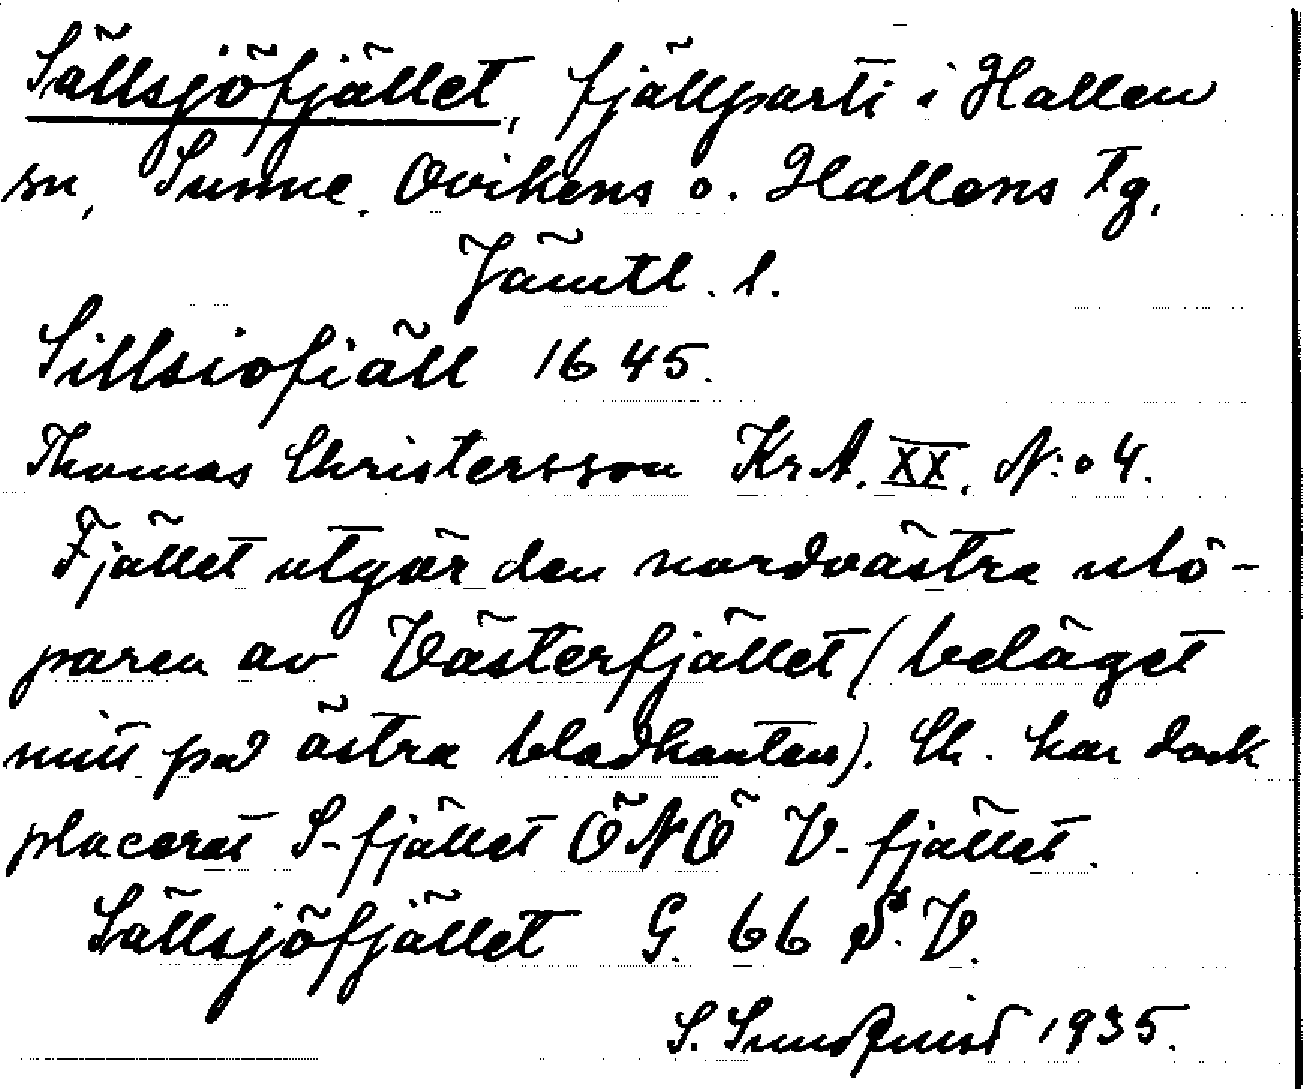 Sällsjöfjället, fjällparti i Hallen
sn, Sunne, Ovikens o. Hallens tg,
Jämtl. l.
Sillsiofiäll 1645.
Thomas Christersson Kr A. XX, N:o 4.
Fjället utgör den nordvästra utlö-
paren av Västerfjället (beläget
mitt på östra bladkanten). Ch. har dock
placerat S-fjället ÖNÖ V-fjället.
Sällsjöfjället G. 66 S.V.
S. Sundquist 1935.